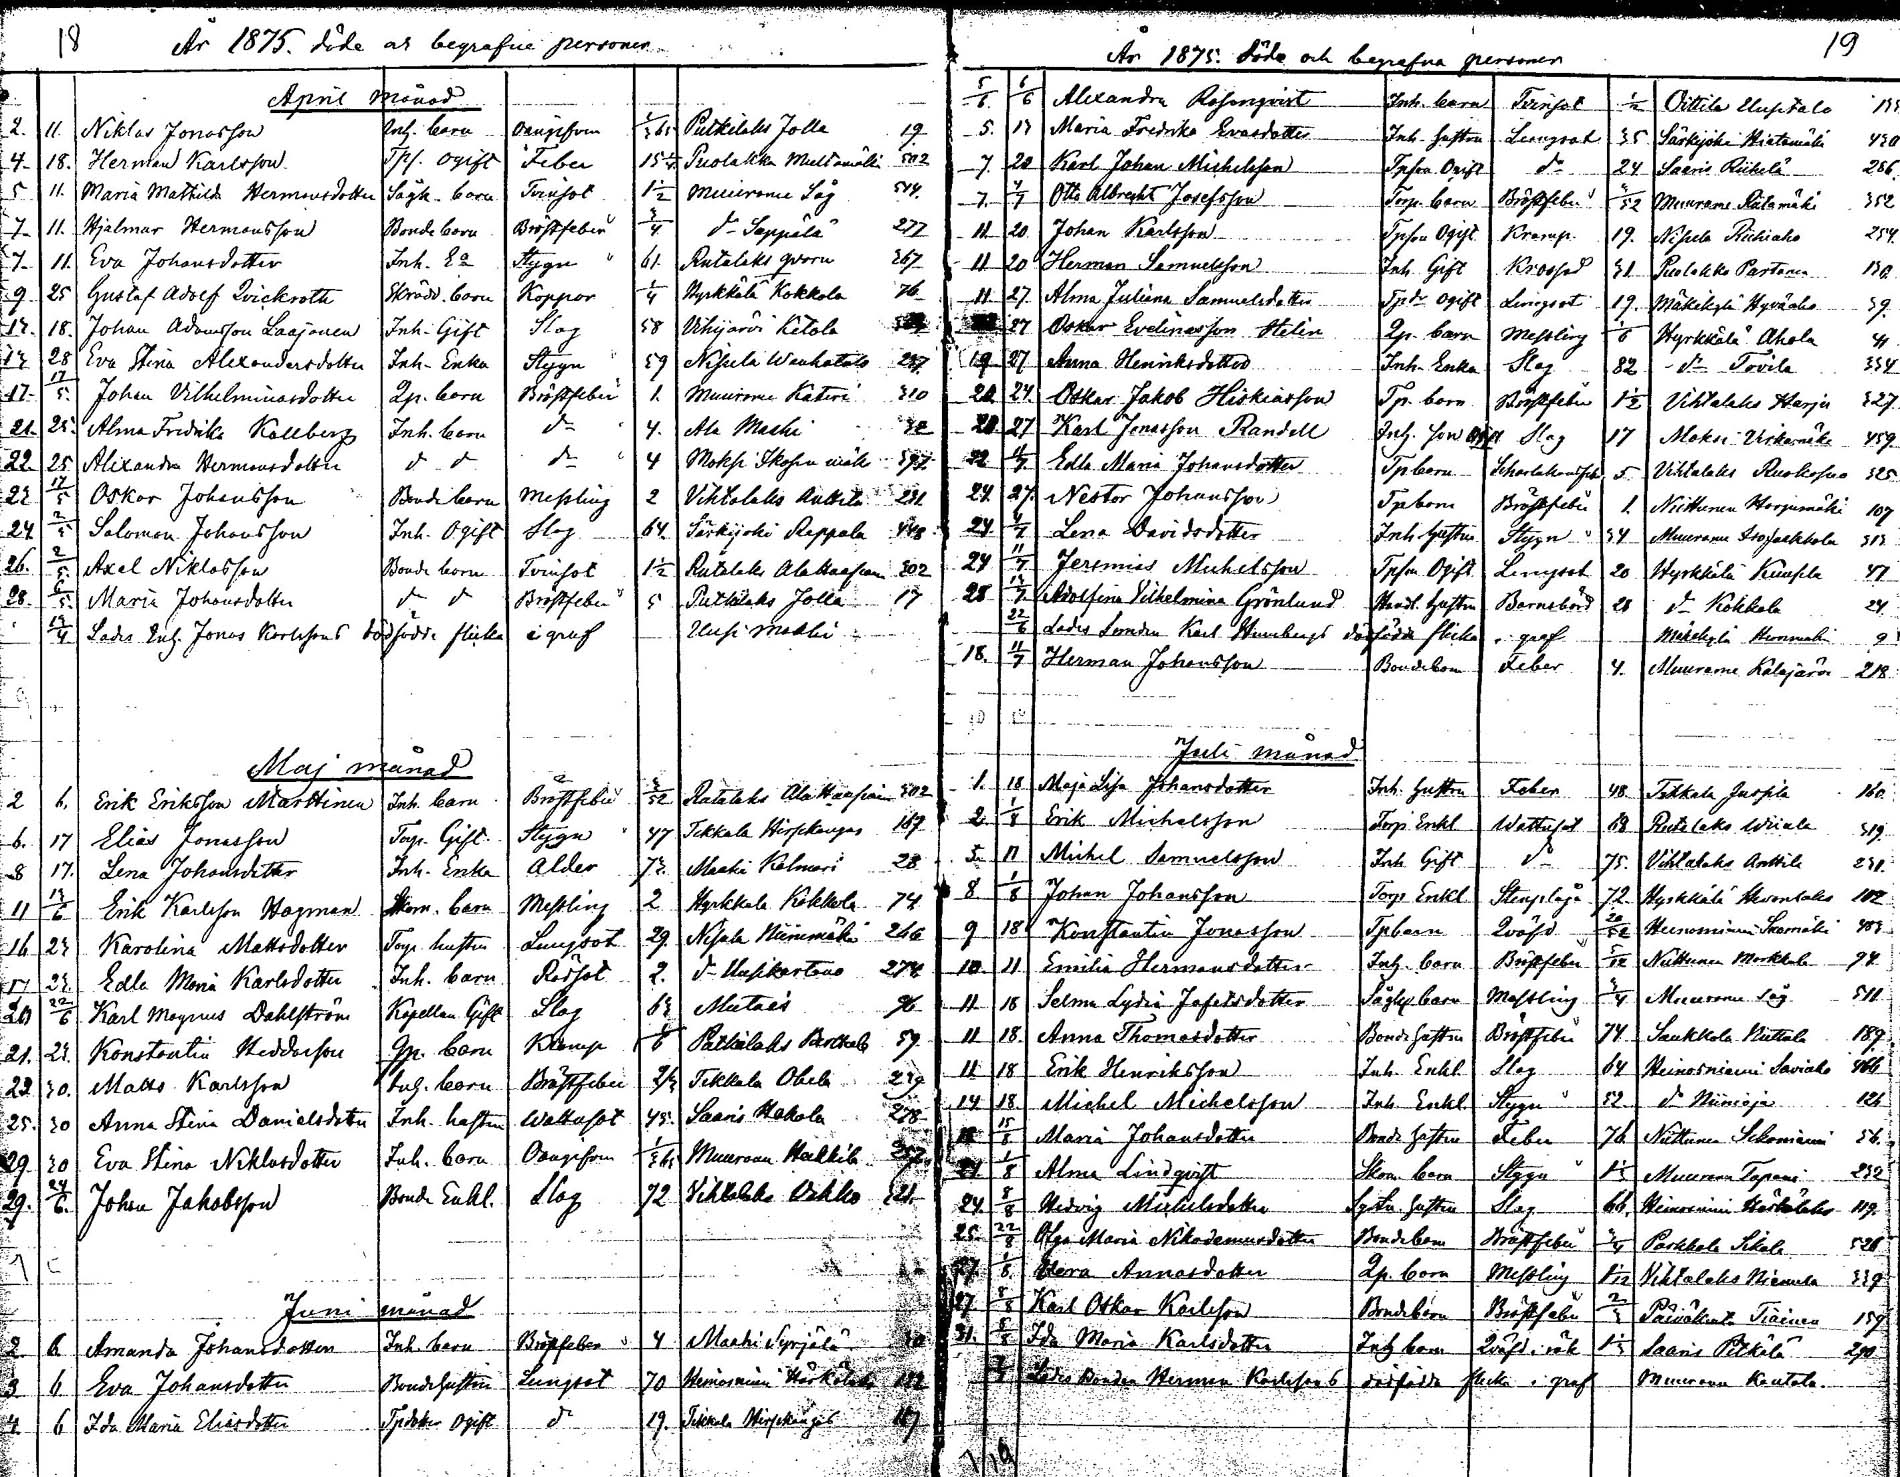 18 År 1875. döde och begrafne personer
April månad
2. 11. Niklas Jonasson Inh. barn Oangifven 1/365 Putkilaks Jolla 19
4. 18. Herman Karlsson Tps. ogift Feber 15 Puolakka Multamäki 502
5 11. Maria Mathilda Hermansdotter Sågk. barn Tvinsot 1 1/2 Muurame Såg 514.
7 11. Hjalmar Hermansson Bonde barn Bröstfeber 3/4 d:o Sappälä 277
7 11. Eva Johansdotter Inh. Ea Stygn 61. Rutalaks qvarn 367
9 25 Gustaf Adolf Qvickroth Skrädd. barn Koppor 1/4 Hyrkkälä Kokkola 76
13. 18. Johan Adamsson Laajanen Inh. Gift Slag 58 Vihijärvi Ketola
13 28 Eva Stina Alexandersdotter Inh. Enka Stygn 59 Nisula Wanhatalo 237
17. 17/5 Johan Vilhelminasdotter Qp. barn Bröstfeber 1. Muurame Kateri 310
21. 25. Alma Fredrika Kallberg Inh. barn d:o 4. Ala Maahi 32
22. 25 Alexandra Hermansdotter d:o d:o d:o 4 Moksi
23 17/5 Oskar Johansson Bonde barn Messling 2 Vihtalaks Anttila 231
24 2/5 Salomon Johansson Inh. Ogift Slag 64. Särkijoki Reppala 448
26. 2/5 Axel Niklasson Bonde barn Tvinsot 1 1/2 Rutalaks Ala Haapian 302
28. 2/5 Maria Johansdotter d:o d:o Bröstfeber 5 Putkilaks Jolla 17
Lades Inh. Jonas Karlssons dödfödde flicka i graf Uusi Maahi
Maj månad
2 6. Erik Eriksson Marttinen Inh. barn Bröstfeber 3/52 Rutalaks Ala Haapian 302
6. 17 Elias Jonasson Torp. Gift Stygn 47 Tikkala Hirpikangas 167
8 17. Lena Johansdotter Inh. Enka Alder 73. Maahi Kalmari 28
11 13/6 Erik Karlsson Hagman Skom. barn Messling 2 Hyrkkälä Kokkola 74
16 23 Karolina Mattsdotter Torp. hustru Lungsot 29. Nisula Niinimäki 266
17 23 Edla Maria Karlsdotter Inh. barn Rödsot 2. d:o Uusikartano 274
20 22/6 Karl Magnus Dahlström Kapellan Gift Slag 63 Mutais 96
21. 23. Konstantin Heddasson Qp. barn Kramp Putkilaks Perttala 59
23 30. Matts Karlsson Inh. barn Bröstfeber 2/3 Tikkala Obela 239
25. 30 Anna Stina Danielsdotter Inh. hustru Wattusot 43. Saaris Hakola 278
29 30 Eva Stina Niklasdotter Inh. barn Oangifven 1/365 Muurame Heikkilä 257
29. 24/6. Johan Jakobsson Bonde Enkl. Slag 72 Vihtalaks Ukkko
Juni månad
2. 6 Amanda Johansdotter Inh. barn Bröstfeber 4 Maahi Syrjälä 30
3 6 Eva Johansdotter Bondehustru Lungsot 70 Heinosniemi Härkälaks 112
4. 6 Ida Maria Eliasdotter Tpdotter Ogift d:o 19. Tikkala Hirpikangas 167
19
År 1875. döda och begrafna personer
5/6. 6/6 Alexandra Rosenqvist Inh. barn Tvinsot 1/2 Oittila Uusitalo
5. 13 Maria Fredrika Evasdotter Inh. hustru Lungsot 35 Särkijoki Hietamäki 430
7 20 Karl Johan Michelsson Tpson Ogift d:o 24 Saaris Riihelä 286
7. 4/7 Otto Albrecht Josefsson Torp. barn Bröstfeber /52 Muurame Rätamäki 352
11 20 Johan Karlsson Tpson Ogift Kramp. 19. Nisula Riihiaho 254
11 20 Herman Samuelsson Inh. Gift Krossad 31 Puolakka Partanen 130
11 27. Alma Juliana Samuelsdotter Tpdr ogift Lungsot 19. Mäkikylä Hyväaho 59.
27 Oskar Evelinasson Helin Qp. barn Messling 1/6 Hyrkkälä Ahola 41
19 27 Anna Henriksdotter Inh. Enka Slag 82 d:o Tövila 334
20 24 Oskar Jakob Hiskiasson Tp. barn Bröstfeber 1 1/2 Vihtalaks Harju 327
20 27 Karl Jonasson Randell Inh. son Ogift Slag 17 Moksi 459
22 4/7 Edla Maria Johansdotter Tpbarn Scharlakansfeb 5 Vihtalaks Ruokosuo 325
24. 27. Nestor Johansson Tpbarn Bröstfeber 1. Niittunen Harjumäki 107
24 4/7 Lena Davidsdotter Inh. hustru Stygn 34 Muurame Isojaakkola 313
24 11/7 Jeremias Michelsson Tpson Ogift Lungsot 20 Hyrkkälä Kuusela 47
28 12/7. Adolfina Vilhelmina Grönlund Handl. hustru Barnsbörd 28 d:o Kokkola 24
22/6 Lades Smeden Karl Humbergs dödfödda flicka i graf Mäkikylä 9
18. 11/7 Herman Johansson Bondebarn Feber 4. Muurame Kalajärvi 218
Juli månad
1. 18 Maja Lisa Johansdotter Inh. hustru Feber 48. Tikkala Juspila 160
2. 1/8 Erik Michelsson Torp Enkl Wattusot 68 Rutalaks Wiiala 319.
5 11 Michel Samuelsson Inh. Gift d:o 75. Vihtalaks Anttila 231
8 1/8 Johan Johansson Torp Enkl Stenplåga 72. Hyrkkälä 102
9 18 Konstantin Jonasson Tpbarn Qväfd 20/52 Heinosniemi 483
10 11 Emilia Hermansdotter Inh. barn Bröstfeber 5/12 Niittunen Markkula 94
11 18 Selma Lydia Jafetsdotter Sågk barn Messling 3/4 Muurame Såg 511
11 18. Anna Thomasdotter Bonde hustru Bröstfeber 74 Saukkola Niittula 189
11 18 Erik Henriksson Inh. Enkl. Slag 64 Heinosniemi Saviaho 466
14 18. Michel Michelsson Inh Enkl Stygn 52. d:o Niinioja 126
15/8 Maria Johansdotter Bonde hustru Feber 76. Niittunen Sikoniemi 56.
21 1/8 Alma Lindqvist Skom barn Stygn 1 Muurame Tapani 232
24. 8/8 Hedvig Michelsdotter Sytn. hustru Slag 66. Heinosniemi Härkälaks 119.
25. 22/8 Olga Maria Nikodemusdotter Bondebarn Bröstfeber 3/4 Parkkola Sikala 526
27. 1/8. Vera Annasdotter Qp. barn Messling 1 1/12 Vihtalaks Niemela 339
27. 8/8 Karl Oskar Karlsson Bondebarn Bröstfeber 2/3 Päiväkunta Tiainen 159
31. 8/8 Ida Maria Karlsdotter Inh barn Qväfd i rök 1 Saaris Pitkälä 290
Lades Bonden Herman Karlssons dödfödda flicka i graf Muurame Rautala.